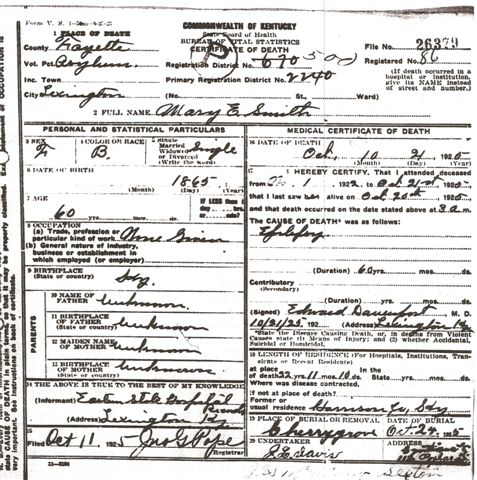 Form V. S. 1-
COMMONWEALTH OF KENTUCKY
State Board of Health
BUREAU OF VITAL STATISTICS
CERTIFICATE OF DEATH
1 PLACE OF DEATH
County Fayette
Vot. Pct.
Inc. Town
City Lexington
Registration District No. 670
Primary Registration District No. 2240
File No. 26379
Registered No. 86
(If death occurred in a hospital or institution, give its NAME instead of street and number.)
(No. St. Ward)
2 FULL NAME Mary E. Smith
PERSONAL AND STATISTICAL PARTICULARS
3 SEX F
4 COLOR OR RACE B.
5 Single Married Widowed or Divorced (Write the word) Single
6 DATE OF BIRTH
1865
(Month) (Day) (Year)
7 AGE
60 yrs. mos. ds.
IF LESS than
8 OCCUPATION
(a) Trade, profession or particular kind of work None Given
(b) General nature of industry, business or establishment in which employed (or employer)
9 BIRTHPLACE
(State or country) Ky
PARENTS
10 NAME OF FATHER unknown
11 BIRTHPLACE OF FATHER (State or country) unknown
12 MAIDEN NAME OF MOTHER unknown
13 BIRTHPLACE OF MOTHER (State or country) unknown
14 THE ABOVE IS TRUE TO THE BEST OF MY KNOWLEDGE
(Informant) Eastern State Hospital Records
(Address) Lexington Ky
15
Oct 11 1925 Jno G Pope
Registrar
MEDICAL CERTIFICATE OF DEATH
16 DATE OF DEATH
Oct. 21 1925
(Month) (Day) (Year)
17 I HEREBY CERTIFY, That I attended deceased
from 1 1922 to Oct 21st 1925
that I last saw her alive on Oct 20th 1925
and that death occurred on the date stated above at 3 a m.
The CAUSE OF DEATH* was as follows:
Epilepsy
(Duration) 60 yrs. mos. ds.
Contributory
(Secondary)
(Duration) yrs. mos. ds.
(Signed) Edward Davenport M. D.
10/21/25, 192 (Address) Lexington Ky
*State the Disease Causing Death, or, in deaths from Violent Causes state (1) Means of Injury; and (2) whether Accidental, Suicidal or Homicidal.
18 LENGTH OF RESIDENCE (For Hospitals, Institutions, Transients or Recent Residents)
of death 22 yrs. 11 mos. 10 ds.
Where was disease contracted,
if not at place of death?
Former or
usual residence Harrison Co, Ky
19 PLACE OF BURIAL OR REMOVAL
Cherrygrove
DATE OF BURIAL
Oct. 24, 1925
20 UNDERTAKER
J. E. Davis
ADDRESS